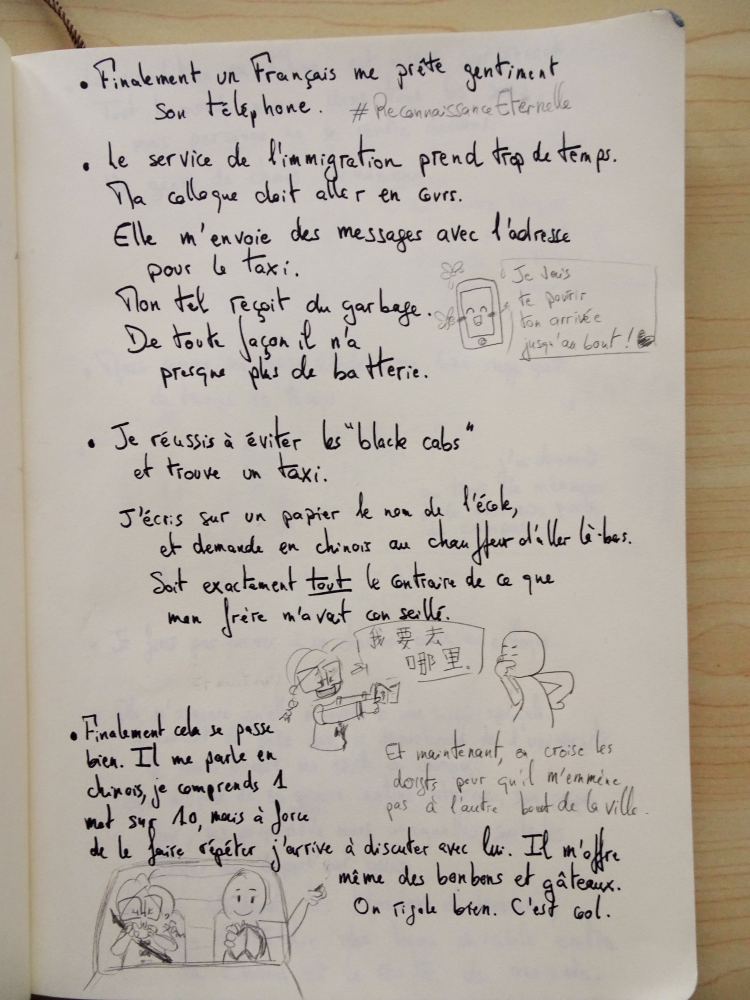 • Finalement un Français me prête gentiment
son téléphone. #ReconnaissanceEternelle
• Le service de l'immigration prend trop de temps.
Ma colloque doit aller en cours.
Elle m'envoie des messages avec l'adresse
pour le taxi.
Mon tel reçoit du garbage.
De toute façon il n'a
presque plus de batterie.
Je vais
te pourrir
ton arrivée
jusqu'au bout !
• Je réussis à éviter les "black cabs"
et trouve un taxi.
J'écris sur un papier le nom de l'école,
et demande en chinois au chauffeur d'aller là-bas.
Soit exactement tout le contraire de ce que
mon frère m'avait conseillé.
我要去
哪里.
• Finalement cela se passe
bien. Il me parle en
chinois, je comprends 1
mot sur 10, mais à force
de le faire répéter j'arrive à discuter avec lui. Il m'offre
même des bonbons et gâteaux.
On rigole bien. C'est cool.
Et maintenant, on croise les
doigts pour qu'il m'emmène
pas à l'autre bout de la ville.